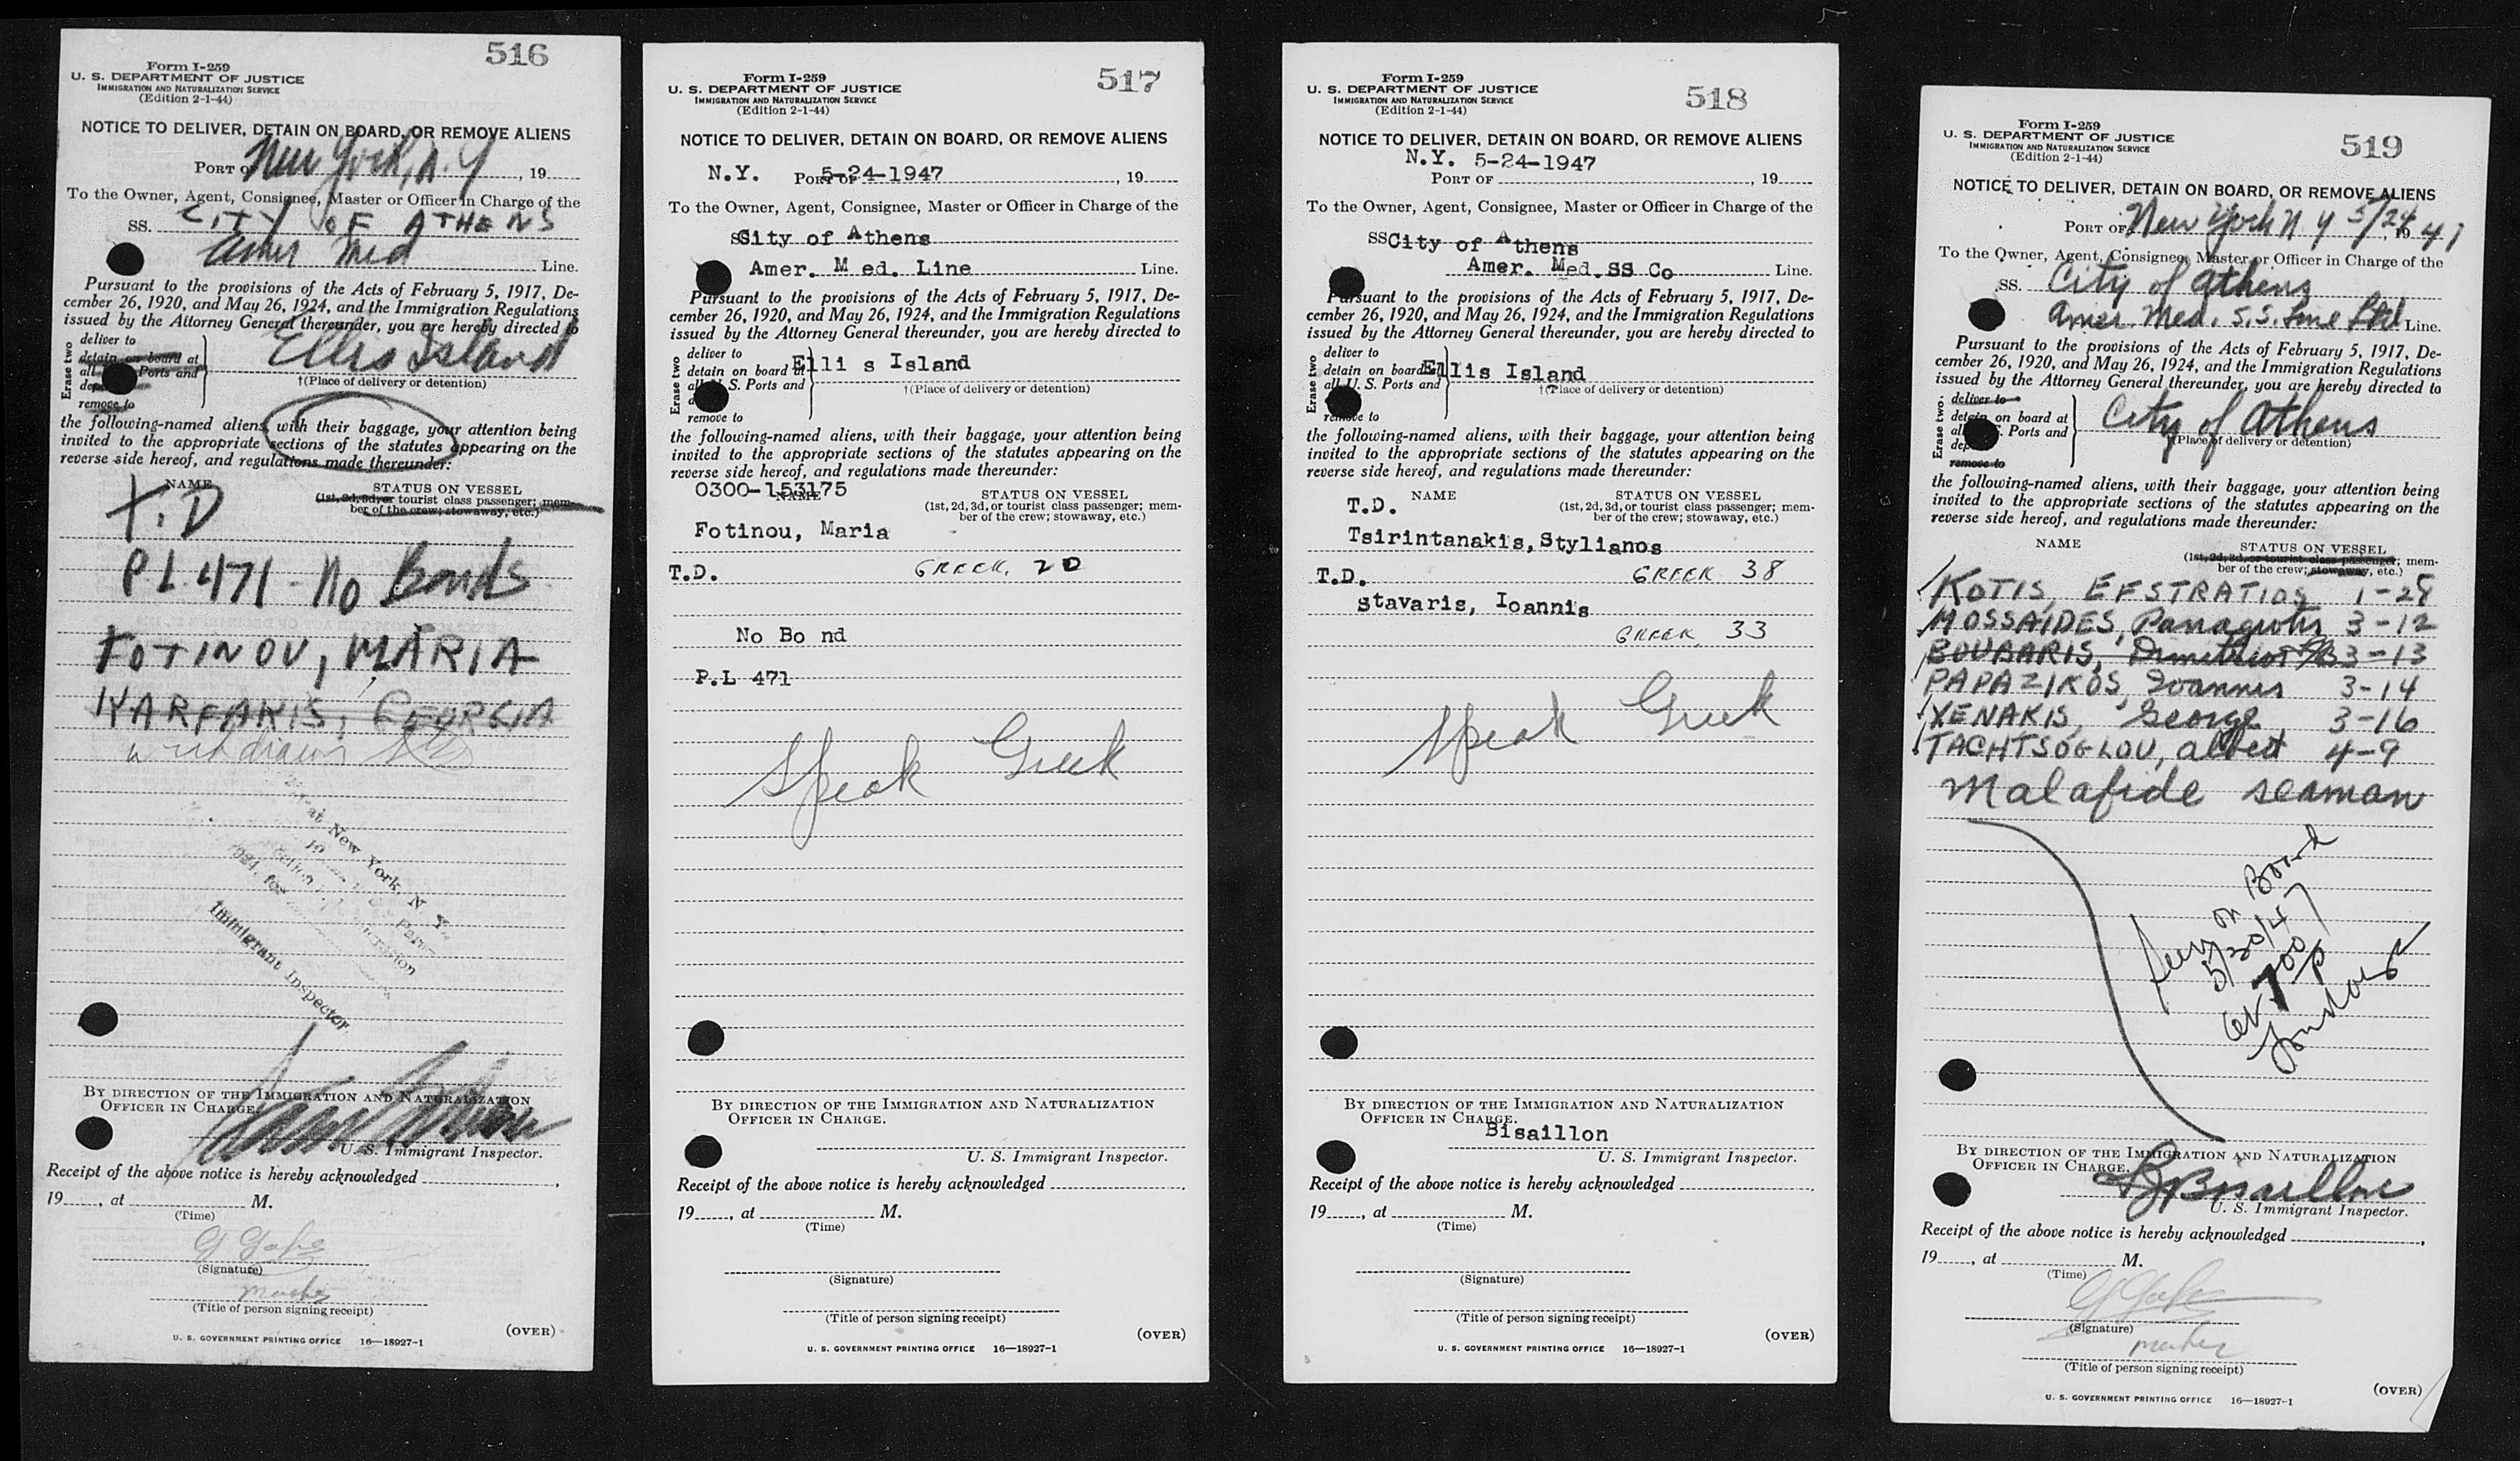 516
Form I-259
U. S. DEPARTMENT OF JUSTICE
IMMIGRATION AND NATURALIZATION SERVICE
(Edition 2-1-44)
NOTICE TO DELIVER, DETAIN ON BOARD, OR REMOVE ALIENS
PORT OF New York, N. Y , 19
To the Owner, Agent, Consignee, Master or Officer in Charge of the
SS. CITY OF ATHENS
Amer Med Line.
Pursuant to the provisions of the Acts of February 5, 1917, De-
cember 26, 1920, and May 26, 1924, and the Immigration Regulations
issued by the Attorney General thereunder, you are hereby directed to
Erase two
deliver to
detain on board at
all Ports and
remove to
Ellis Island
†(Place of delivery or detention)
the following-named aliens, with their baggage, your attention being
invited to the appropriate sections of the statutes appearing on the
reverse side hereof, and regulations made thereunder:
NAME
STATUS ON VESSEL
(1st, 2d, 3d, or tourist class passenger; mem-
ber of the crew; stowaway, etc.)
T.D
P L 471 - No Bonds
FOTINOU, MARIA
KARFAKIS, GEORGIA
withdrawn
at New York, N. Y.
19
Immigrant Inspector.
BY DIRECTION OF THE IMMIGRATION AND NATURALIZATION
OFFICER IN CHARGE.
U. S. Immigrant Inspector.
Receipt of the above notice is hereby acknowledged
19 , at M.
(Time)
(Signature)
(Title of person signing receipt)
(OVER)
U. S. GOVERNMENT PRINTING OFFICE 16—18927-1
517
Form I-259
U. S. DEPARTMENT OF JUSTICE
IMMIGRATION AND NATURALIZATION SERVICE
(Edition 2-1-44)
NOTICE TO DELIVER, DETAIN ON BOARD, OR REMOVE ALIENS
N.Y. PORT OF 5-24-1947 , 19
To the Owner, Agent, Consignee, Master or Officer in Charge of the
SS City of Athens
Amer. M ed. Line Line.
Pursuant to the provisions of the Acts of February 5, 1917, De-
cember 26, 1920, and May 26, 1924, and the Immigration Regulations
issued by the Attorney General thereunder, you are hereby directed to
Erase two
deliver to
detain on board at
all U. S. Ports and
remove to
Elli s Island
†(Place of delivery or detention)
the following-named aliens, with their baggage, your attention being
invited to the appropriate sections of the statutes appearing on the
reverse side hereof, and regulations made thereunder:
0300-153175
NAME
STATUS ON VESSEL
(1st, 2d, 3d, or tourist class passenger; mem-
ber of the crew; stowaway, etc.)
Fotinou, Maria
T.D. GREEK. 20
No Bo nd
P.L 471
Speak Greek
BY DIRECTION OF THE IMMIGRATION AND NATURALIZATION
OFFICER IN CHARGE.
U. S. Immigrant Inspector.
Receipt of the above notice is hereby acknowledged
19 , at M.
(Time)
(Signature)
(Title of person signing receipt)
(OVER)
U. S. GOVERNMENT PRINTING OFFICE 16—18927-1
518
Form I-259
U. S. DEPARTMENT OF JUSTICE
IMMIGRATION AND NATURALIZATION SERVICE
(Edition 2-1-44)
NOTICE TO DELIVER, DETAIN ON BOARD, OR REMOVE ALIENS
N.Y. 5-24-1947
PORT OF , 19
To the Owner, Agent, Consignee, Master or Officer in Charge of the
SS City of Athens
Amer. Med.SS Co Line.
Pursuant to the provisions of the Acts of February 5, 1917, De-
cember 26, 1920, and May 26, 1924, and the Immigration Regulations
issued by the Attorney General thereunder, you are hereby directed to
Erase two
deliver to
detain on board at
all U. S. Ports and
remove to
Ellis Island
†(Place of delivery or detention)
the following-named aliens, with their baggage, your attention being
invited to the appropriate sections of the statutes appearing on the
reverse side hereof, and regulations made thereunder:
T.D. NAME
STATUS ON VESSEL
(1st, 2d, 3d, or tourist class passenger; mem-
ber of the crew; stowaway, etc.)
Tsirintanakis,Stylianos
T.D. GREEK 38
Stavaris, Ioannis
GREEK 33
Speak Greek
BY DIRECTION OF THE IMMIGRATION AND NATURALIZATION
OFFICER IN CHARGE.
Bisaillon
U. S. Immigrant Inspector.
Receipt of the above notice is hereby acknowledged
19 , at M.
(Time)
(Signature)
(Title of person signing receipt)
(OVER)
U. S. GOVERNMENT PRINTING OFFICE 16—18927-1
519
Form I-259
U. S. DEPARTMENT OF JUSTICE
IMMIGRATION AND NATURALIZATION SERVICE
(Edition 2-1-44)
NOTICE TO DELIVER, DETAIN ON BOARD, OR REMOVE ALIENS
PORT OF New York N. Y 5/24, 19 47
To the Owner, Agent, Consignee, Master or Officer in Charge of the
SS. City of Athens
Amer. Med. S.S. Line Ltd Line.
Pursuant to the provisions of the Acts of February 5, 1917, De-
cember 26, 1920, and May 26, 1924, and the Immigration Regulations
issued by the Attorney General thereunder, you are hereby directed to
Erase two.
deliver to
detain on board at
all S. Ports and
remove to
City of Athens
†(Place of delivery or detention)
the following-named aliens, with their baggage, your attention being
invited to the appropriate sections of the statutes appearing on the
reverse side hereof, and regulations made thereunder:
NAME
STATUS ON VESSEL
(1st, 2d, 3d, or tourist class passenger; mem-
ber of the crew; stowaway, etc.)
KOTIS, EFSTRATIOS 1-28
MOSSAIDES, Panagiotis 3-12
BOUBARIS, Dimitrios 3-13
PAPAZIKOS Ioannis 3-14
XENAKIS, George 3-16
TACHTSOGLOU, Albert 4-9
Malafide seaman
on Board
5/30/47
at 700 P
BY DIRECTION OF THE IMMIGRATION AND NATURALIZATION
OFFICER IN CHARGE.
Bisaillon
U. S. Immigrant Inspector.
Receipt of the above notice is hereby acknowledged
19 , at M.
(Time)
(Signature)
(Title of person signing receipt)
(OVER)
U. S. GOVERNMENT PRINTING OFFICE 16—18927-1